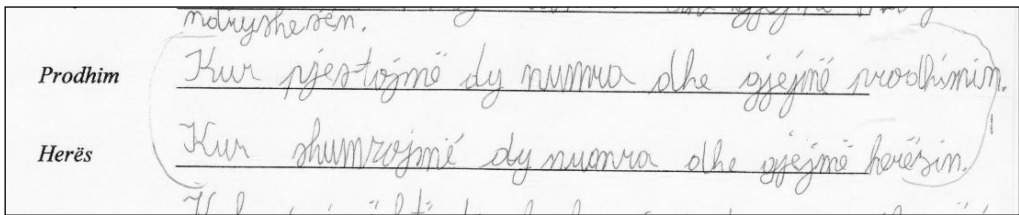 ndryshesën.
Prodhim Kur pjestojmë dy numra dhe gjejmë prodhimin.
Herës Kur shumzojmë dy numra dhe gjejmë herësin.